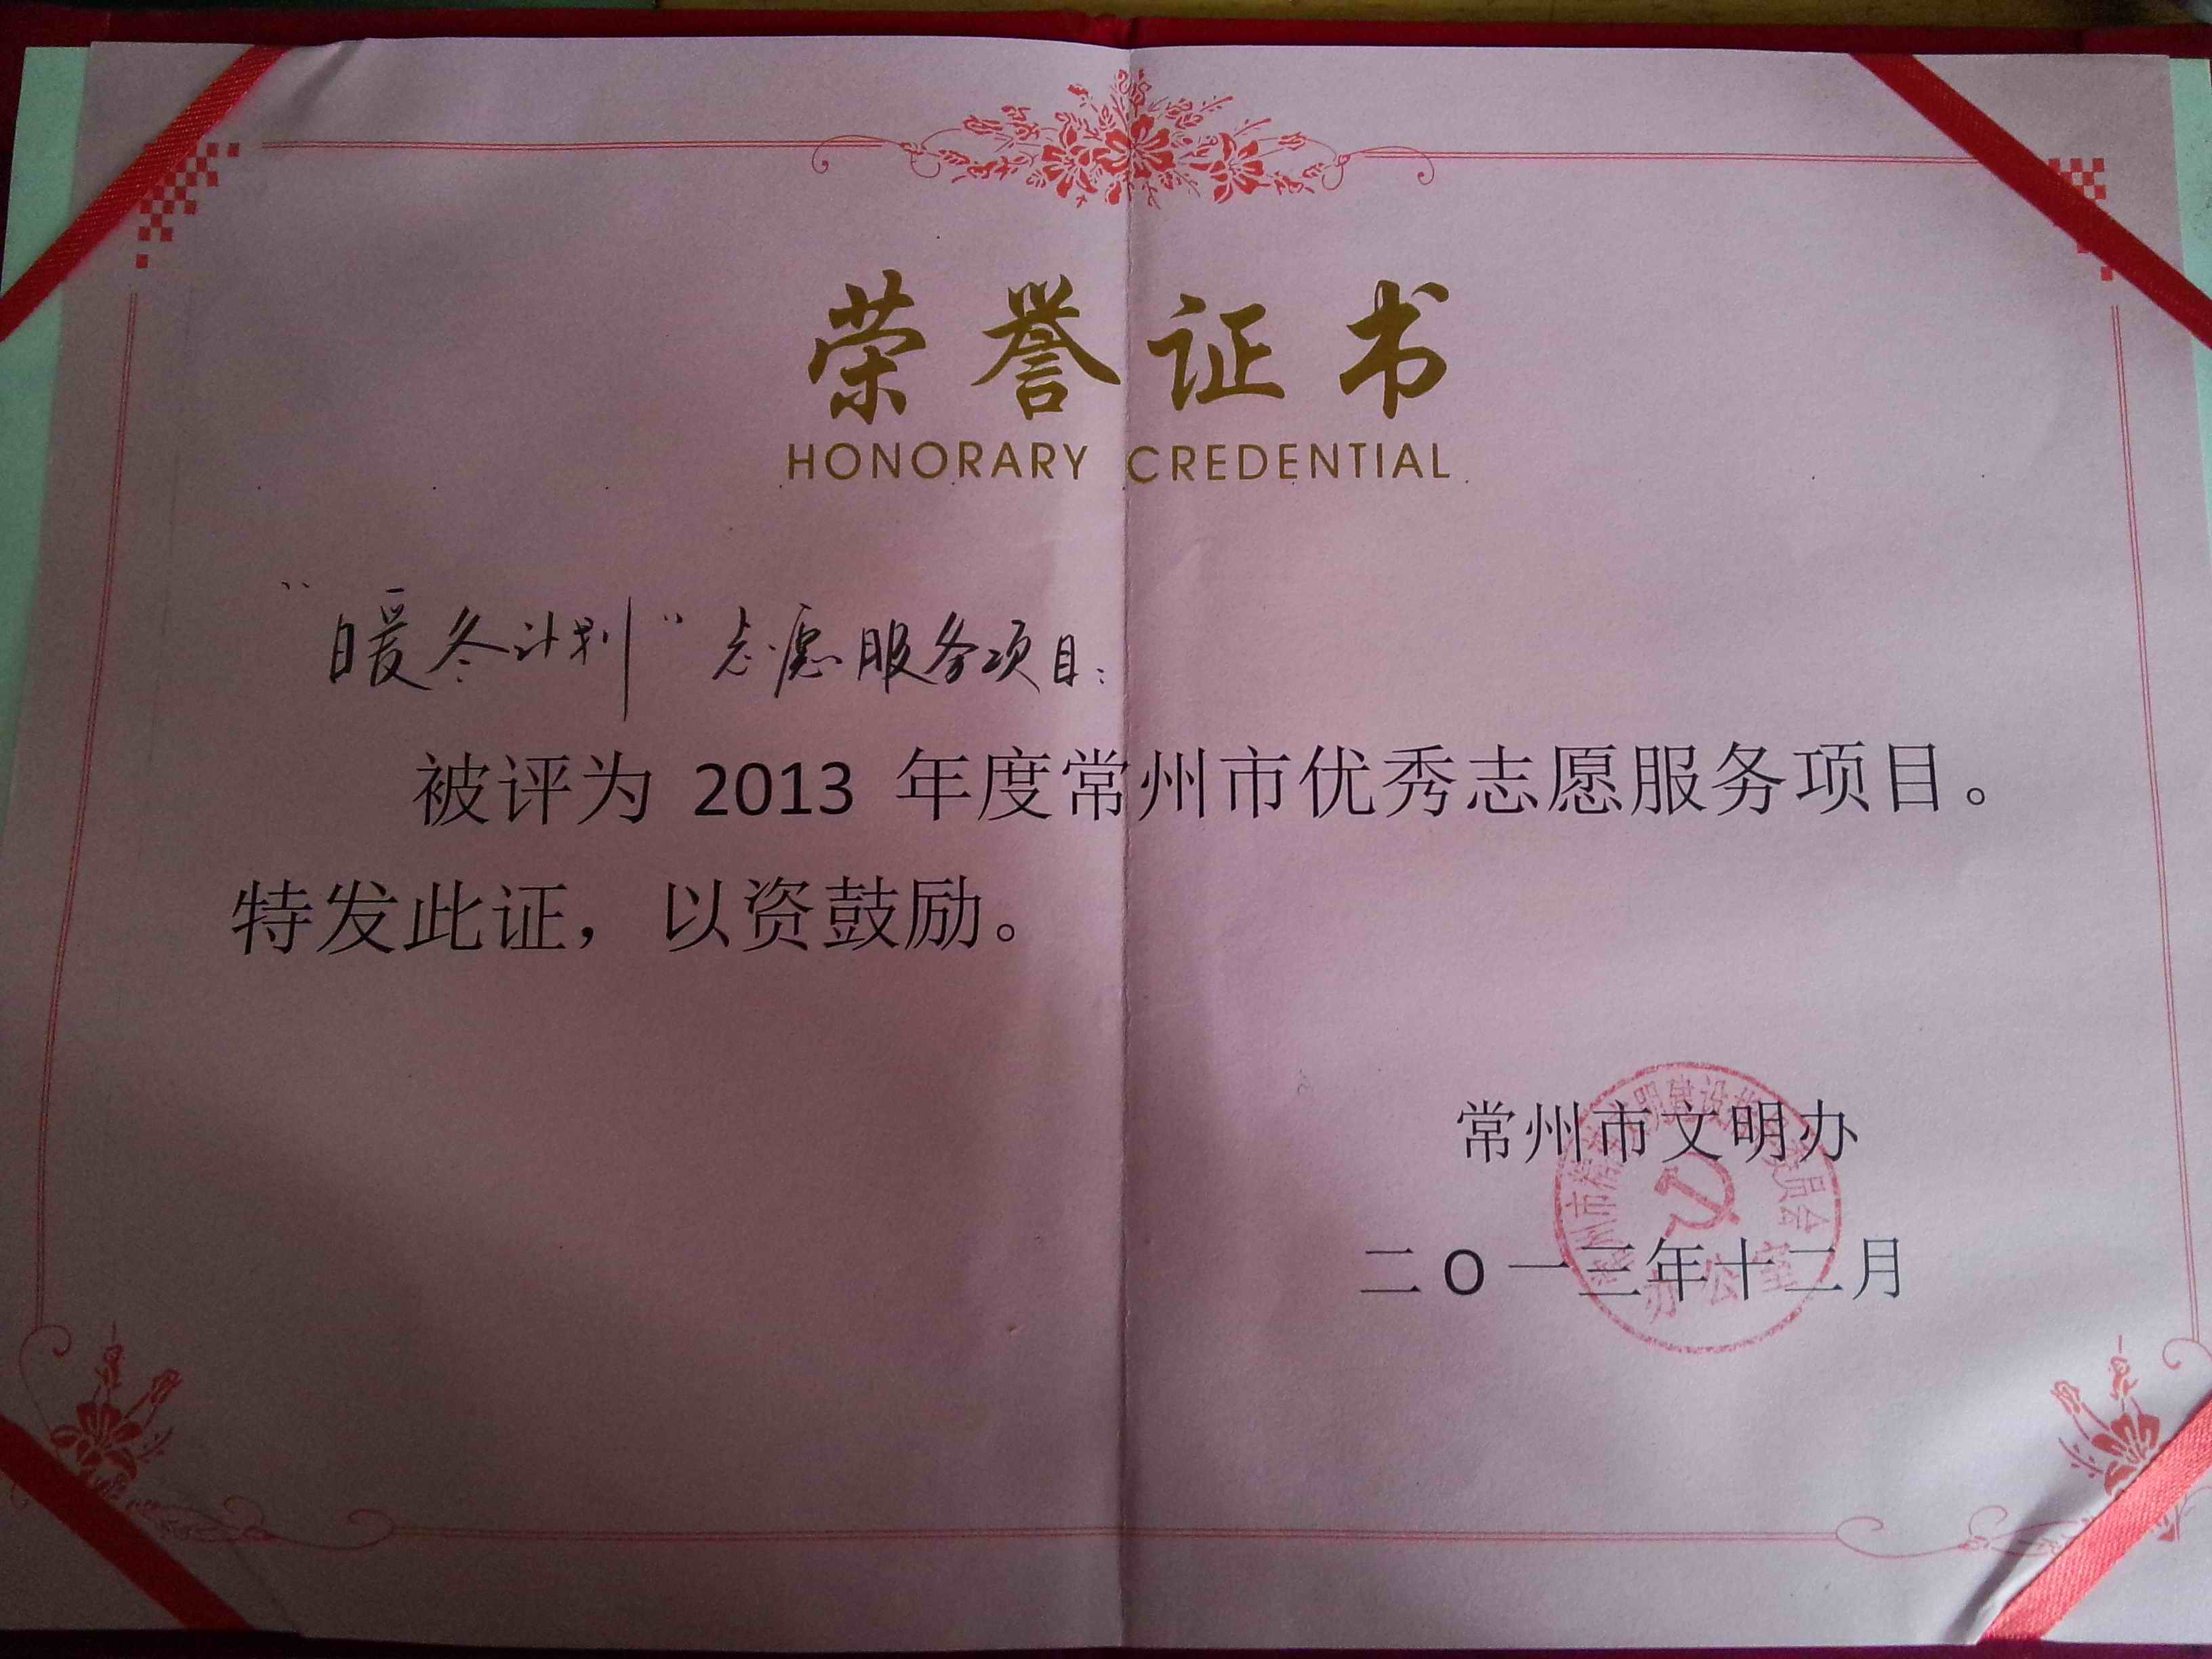 荣誉证书
HONORARY CREDENTIAL
“暖冬计划”志愿服务项目：
被评为 2013 年度常州市优秀志愿服务项目。
特发此证，以资鼓励。
常州市文明办
二O一三年十二月
办公室